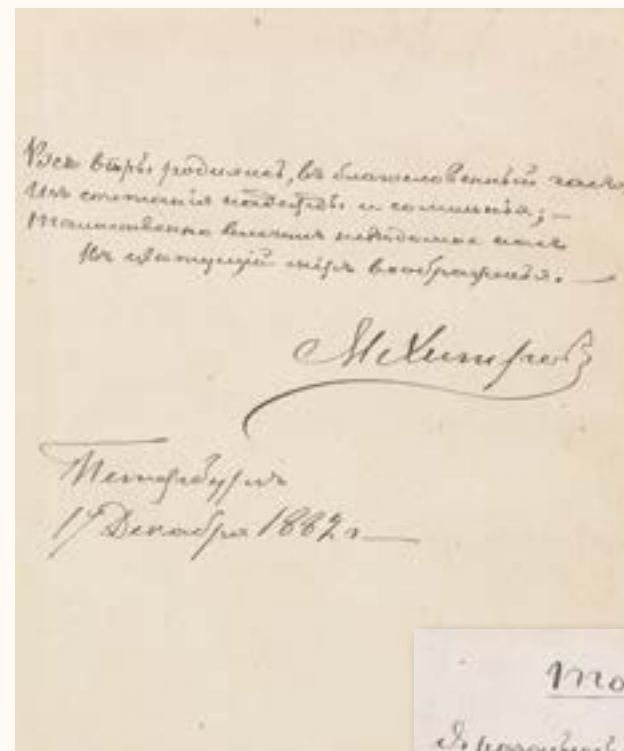 Все вѣры родились, въ благословенный часъ,
Изъ сочетанія надежды и сомнѣнья; —
Таинственно влечетъ невѣдомое насъ
Въ цвѣтущій міръ воображенья. —
М Хитрово
Петербургъ
17 Декабря 1882 г —